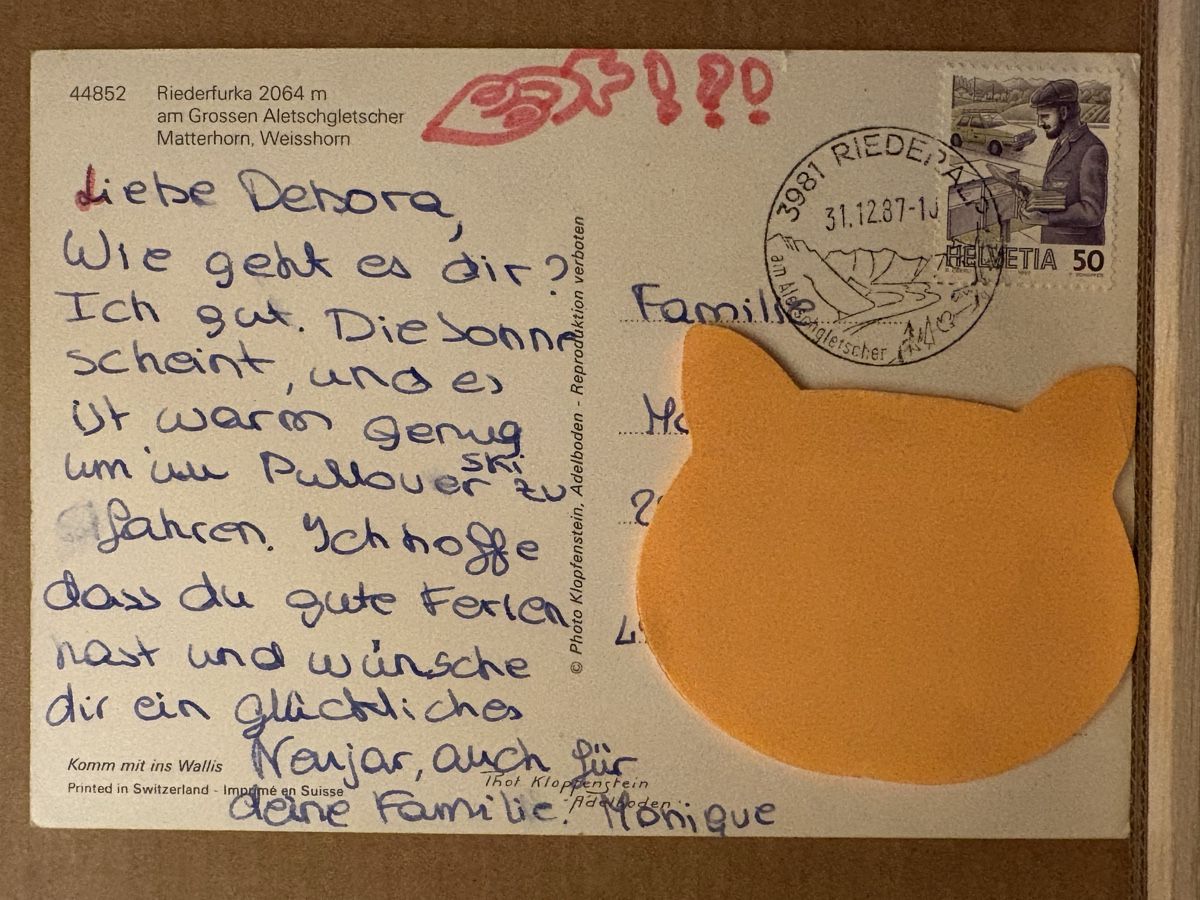 44852 Riederfurka 2064 m
am Grossen Aletschgletscher
Matterhorn, Weisshorn
!??!
3981 RIEDERALP
31.12.87-10
am Aletschgletscher
HELVETIA 50
Liebe Debora,
Wie geht es dir?
Ich gut. Die Sonne
scheint, und es
ist warm genug
um im Pullover ski zu
fahren. Ich hoffe
dass du gute Ferien
hast und wünsche
dir ein glückliches
Neujar, auch für
deine Familie. Monique
© Photo Klopfenstein, Adelboden - Reproduktion verboten
Familie
Komm mit ins Wallis
Printed in Switzerland - Imprimé en Suisse
Thot Klopfenstein
Adelboden